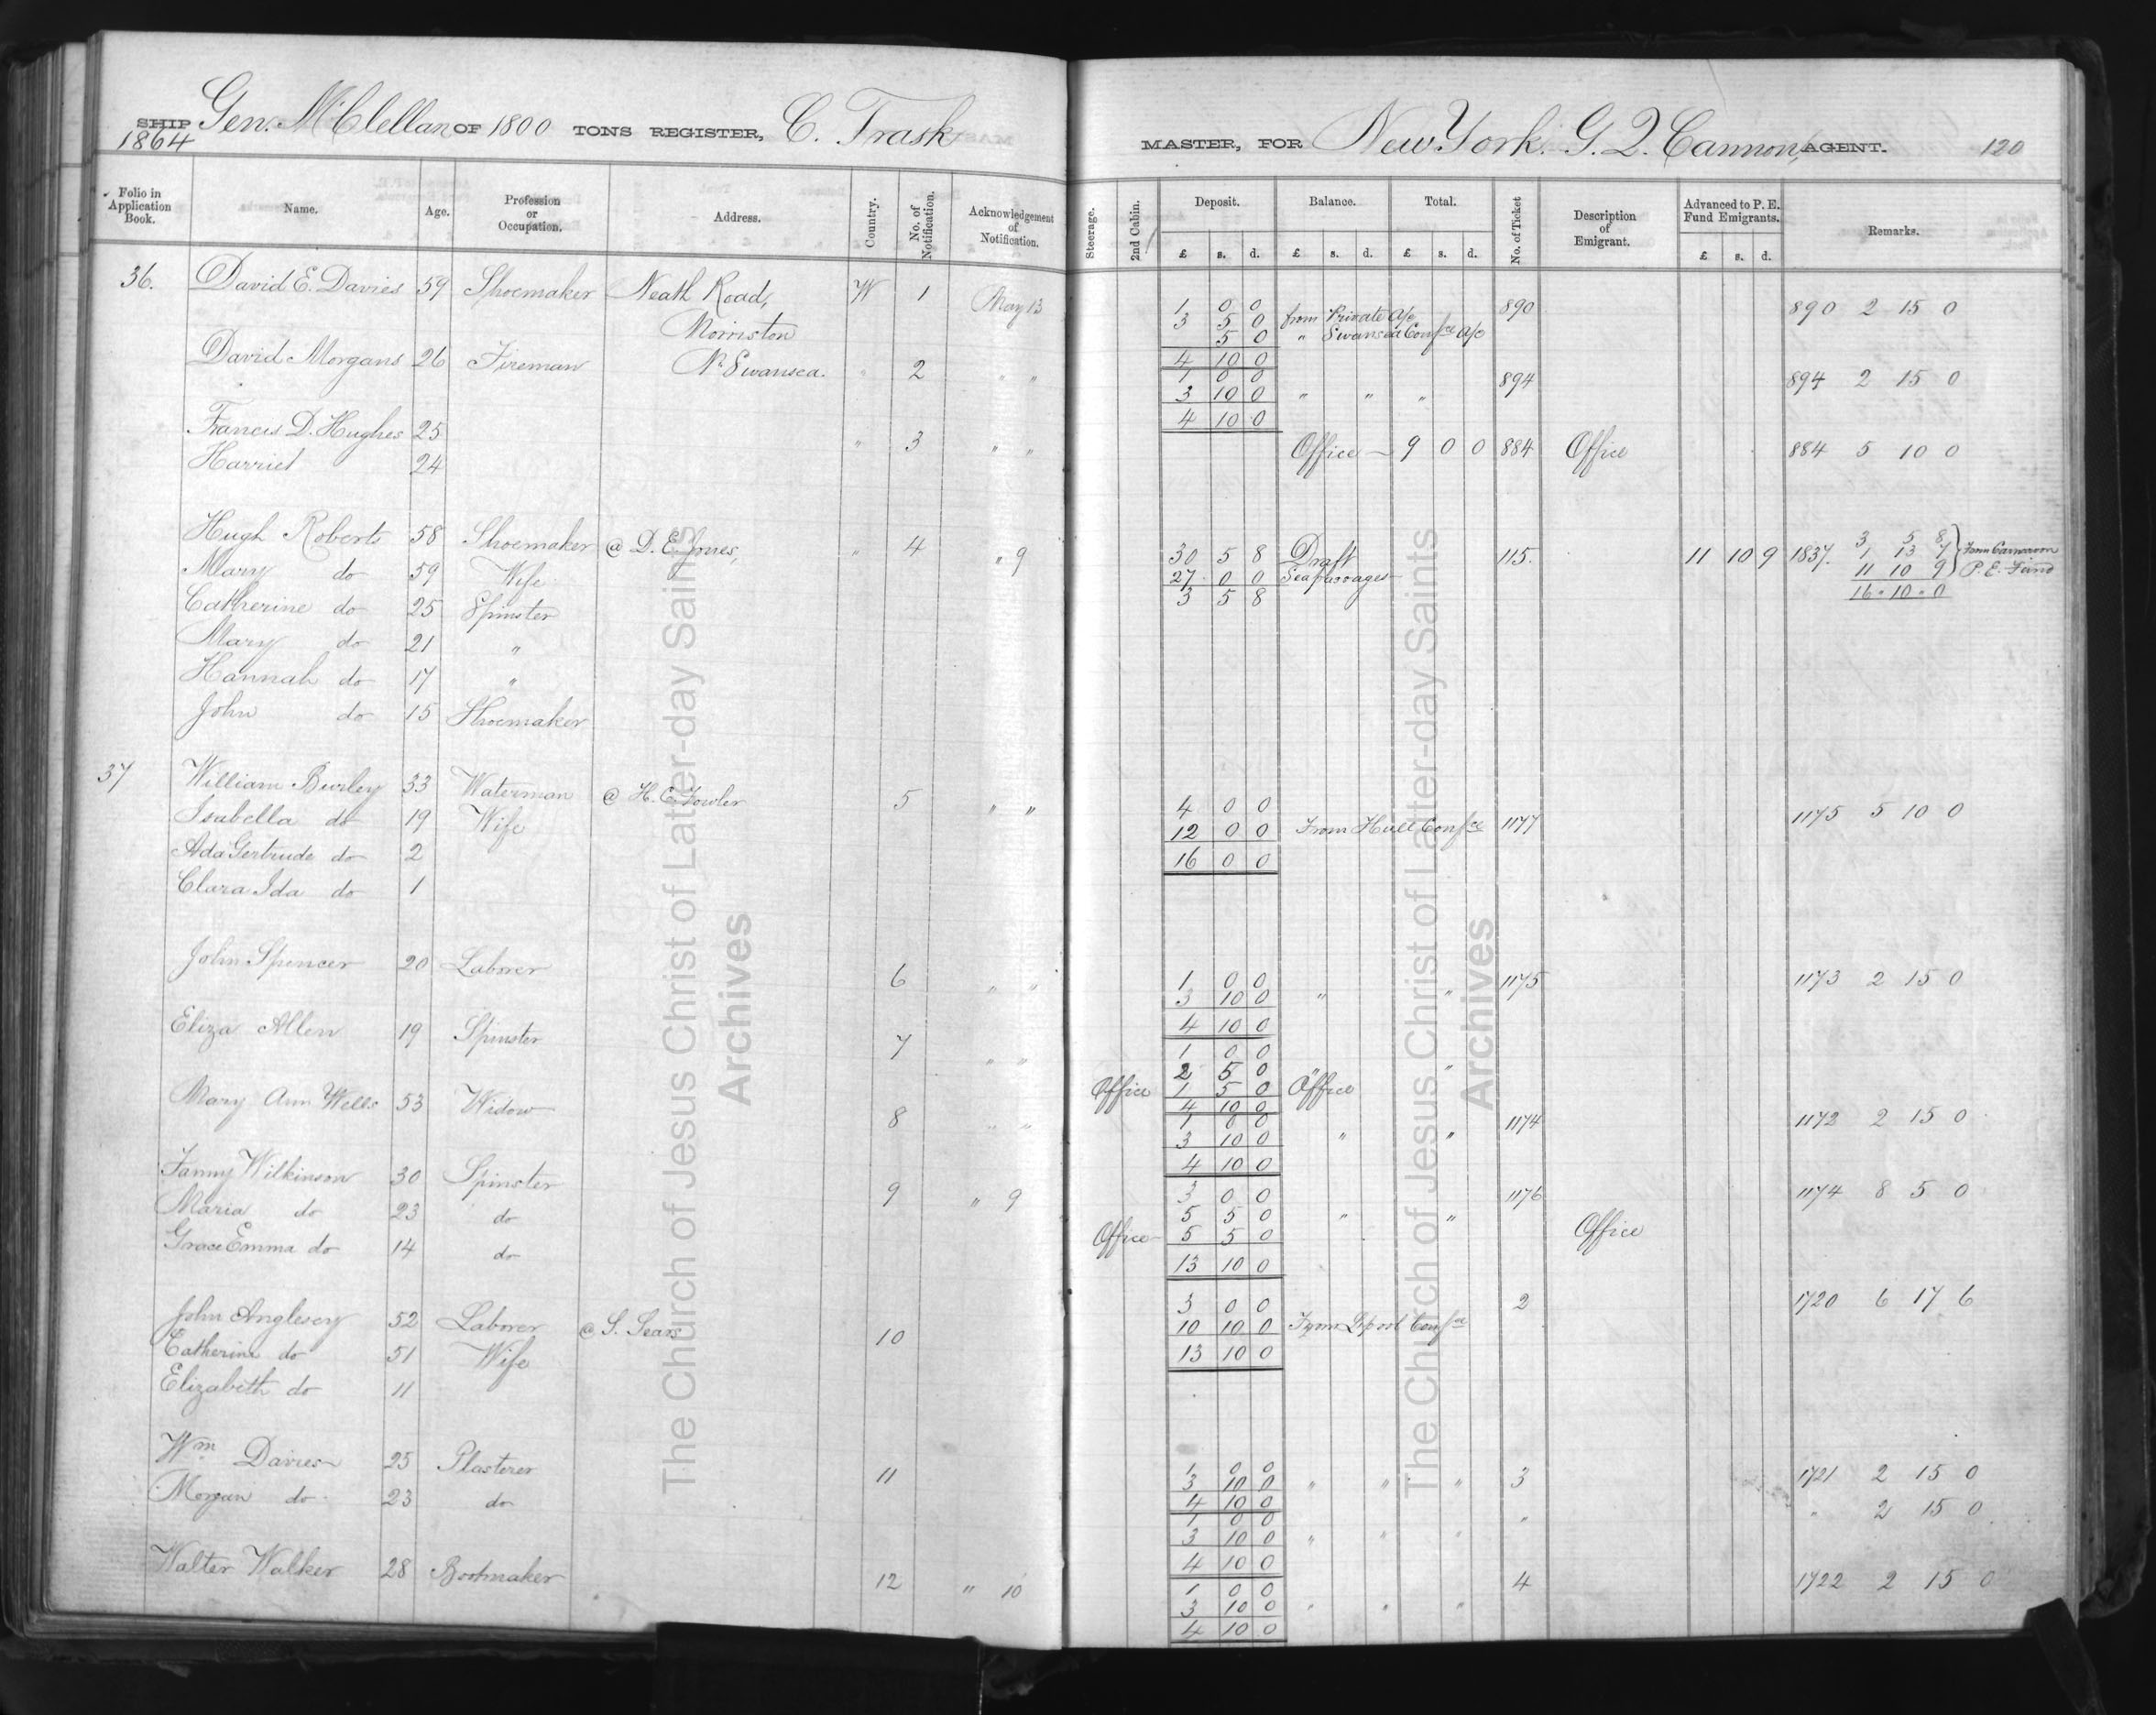 SHIP Gen. McClellan OF 1800 TONS REGISTER, C. Trask MASTER, FOR New York. G. Q. Cannon, AGENT. 120
1864
Folio in Application Book. Name. Age. Profession or Occupation. Address. Country. No. of Notification. Acknowledgement of Notification. Steerage. 2nd Cabin. Deposit. Balance. Total. No. of Ticket Description of Emigrant. Advanced to P. E. Fund Emigrants. Remarks.
£ s. d. £ s. d. £ s. d. £ s. d.
36. David E. Davies 59 Shoemaker Neath Road, W 1 May 13 1 0 0 890 890 2 15 0
3 5 0 from Private a/c
Morriston 5 0 " Swansea Confce a/c
4 10 0
David Morgans 26 Fireman Nr Swansea. " 2 " " 1 0 0 894 894 2 15 0
3 10 0 " " "
4 10 0
Francis D. Hughes 25 " 3 " " Office — 9 0 0 884 Office 884 5 10 0
Harriet 24
Hugh Roberts 58 Shoemaker @ D. E. Jones, " 4 " 9 30 5 8 Draft 115. 11 10 9 1837. 3 5 8
Mary do 59 Wife 27 0 0 Sea passages 1 13 7
Catherine do 25 Spinster 3 5 8 11 10 9 P. E. Fund
16 " 10 " 0
Mary do 21 "
Hannah do 17 "
John do 15 Shoemaker
37 William Burley 33 Waterman @ H. C. Fowler 5 " " 4 0 0 1175 5 10 0
Isabella do 19 Wife 12 0 0 From Hull Confce 1177
Ada Gertrude do 2 16 0 0
Clara Ida do 1
John Spencer 20 Laborer 6 " " 1 0 0 1175 1173 2 15 0
3 10 0 " "
4 10 0
Eliza Allen 19 Spinster 7 " " 1 0 0
2 5 0 " "
Office 1 5 0 Office
4 10 0
Mary Ann Wells 53 Widow 8 " " 1 0 0 1174 1172 2 15 0
3 10 0 " "
4 10 0
Fanny Wilkinson 30 Spinster 9 " 9 3 0 0 1176 1174 8 5 0
Maria do 23 do 5 5 0 " "
Grace Emma do 14 do Office 5 5 0 Office
13 10 0
John Anglesey 52 Laborer @ S. Sears 10 3 0 0 2 1720 6 17 6
Catherine do 51 Wife 10 10 0 From Lpool Confce
Elizabeth do 11 13 10 0
Wm Davies 25 Plasterer 11 1 0 0 3 1721 2 15 0
3 10 0 " " "
4 10 0
Morgan do 23 do 1 0 0 " " 2 15 0
3 10 0 " " "
4 10 0
Walter Walker 28 Bootmaker 12 " 10 1 0 0 4 1722 2 15 0
3 10 0 " " "
4 10 0
The Church of Jesus Christ of Latter-day Saints
Archives
The Church of Jesus Christ of Latter-day Saints
Archives